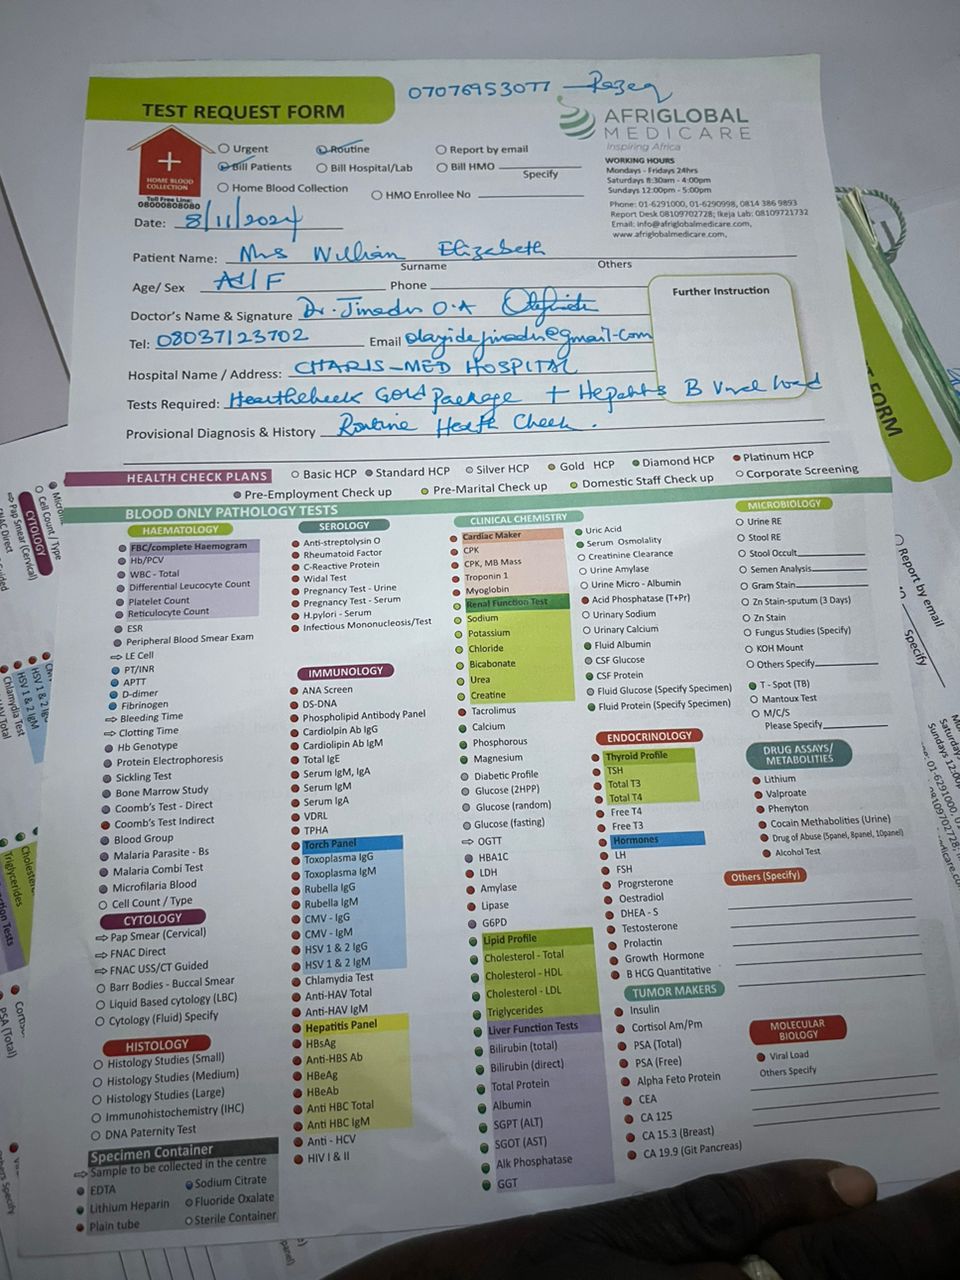 07076953077 – Razaq
TEST REQUEST FORM
AFRIGLOBAL
MEDICARE
Inspiring Africa
HOME BLOOD
COLLECTION
Toll Free Line:
08000808080
Urgent Routine Report by email
Bill Patients Bill Hospital/Lab Bill HMO
Specify
Home Blood Collection HMO Enrollee No
WORKING HOURS
Mondays - Fridays 24hrs
Saturdays 8:30am - 4:00pm
Sundays 12:00pm - 5:00pm
Phone: 01-6291000, 01-6290998, 0814 386 9893
Report Desk 08109702728; Ikeja Lab: 08109721732
Email: info@afriglobalmedicare.com,
www.afriglobalmedicare.com,
Date: 8/11/2024
Patient Name: Mrs William Elizabeth
Surname Others
Age/ Sex F Phone
Doctor's Name & Signature Dr. Jinadu O.A
Tel: 08037123702 Email olayidejinadu@gmail.com
Further Instruction
Hospital Name / Address: CHARIS-MED HOSPITAL
Tests Required: Healthcheck Gold Package + Hepatitis B Viral load
Provisional Diagnosis & History Routine Health Check.
HEALTH CHECK PLANS Basic HCP Standard HCP Silver HCP Gold HCP Diamond HCP Platinum HCP
Pre-Employment Check up Pre-Marital Check up Domestic Staff Check up Corporate Screening
BLOOD ONLY PATHOLOGY TESTS
HAEMATOLOGY
FBC/complete Haemogram
Hb/PCV
WBC - Total
Differential Leucocyte Count
Platelet Count
Reticulocyte Count
ESR
Peripheral Blood Smear Exam
LE Cell
PT/INR
APTT
D-dimer
Fibrinogen
Bleeding Time
Clotting Time
Hb Genotype
Protein Electrophoresis
Sickling Test
Bone Marrow Study
Coomb's Test - Direct
Coomb's Test Indirect
Blood Group
Malaria Parasite - Bs
Malaria Combi Test
Microfilaria Blood
Cell Count / Type
CYTOLOGY
Pap Smear (Cervical)
FNAC Direct
FNAC USS/CT Guided
Barr Bodies - Buccal Smear
Liquid Based cytology (LBC)
Cytology (Fluid) Specify
HISTOLOGY
Histology Studies (Small)
Histology Studies (Medium)
Histology Studies (Large)
Immunohistochemistry (IHC)
DNA Paternity Test
Specimen Container
Sample to be collected in the centre
EDTA Sodium Citrate
Lithium Heparin Fluoride Oxalate
Plain tube Sterile Container
SEROLOGY
Anti-streptolysin O
Rheumatoid Factor
C-Reactive Protein
Widal Test
Pregnancy Test - Urine
Pregnancy Test - Serum
H.pylori - Serum
Infectious Mononucleosis/Test
IMMUNOLOGY
ANA Screen
DS-DNA
Phospholipid Antibody Panel
Cardiolpin Ab IgG
Cardiolipin Ab IgM
Total IgE
Serum IgM, IgA
Serum IgM
Serum IgA
VDRL
TPHA
Torch Panel
Toxoplasma IgG
Toxoplasma IgM
Rubella IgG
Rubella IgM
CMV - IgG
CMV - IgM
HSV 1 & 2 IgG
HSV 1 & 2 IgM
Chlamydia Test
Anti-HAV Total
Anti-HAV IgM
Hepatitis Panel
HBsAg
Anti-HBS Ab
HBeAg
HBeAb
Anti HBC Total
Anti HBC IgM
Anti - HCV
HIV I & II
CLINICAL CHEMISTRY
Cardiac Maker
CPK
CPK, MB Mass
Troponin 1
Myoglobin
Renal Function Test
Sodium
Potassium
Chloride
Bicabonate
Urea
Creatine
Tacrolimus
Calcium
Phosphorous
Magnesium
Diabetic Profile
Glucose (2HPP)
Glucose (random)
Glucose (fasting)
OGTT
HBA1C
LDH
Amylase
Lipase
G6PD
Lipid Profile
Cholesterol - Total
Cholesterol - HDL
Cholesterol - LDL
Triglycerides
Liver Function Tests
Bilirubin (total)
Bilirubin (direct)
Total Protein
Albumin
SGPT (ALT)
SGOT (AST)
Alk Phosphatase
GGT
Uric Acid
Serum Osmolality
Creatinine Clearance
Urine Amylase
Urine Micro - Albumin
Acid Phosphatase (T+Pr)
Urinary Sodium
Urinary Calcium
Fluid Albumin
CSF Glucose
CSF Protein
Fluid Glucose (Specify Specimen)
Fluid Protein (Specify Specimen)
ENDOCRINOLOGY
Thyroid Profile
TSH
Total T3
Total T4
Free T4
Free T3
Hormones
LH
FSH
Progrsterone
Oestradiol
DHEA - S
Testosterone
Prolactin
Growth Hormone
B HCG Quantitative
TUMOR MAKERS
Insulin
Cortisol Am/Pm
PSA (Total)
PSA (Free)
Alpha Feto Protein
CEA
CA 125
CA 15.3 (Breast)
CA 19.9 (Git Pancreas)
MICROBIOLOGY
Urine RE
Stool RE
Stool Occult
Semen Analysis
Gram Stain
Zn Stain-sputum (3 Days)
Zn Stain
Fungus Studies (Specify)
KOH Mount
Others Specify
T - Spot (TB)
Mantoux Test
M/C/S
Please Specify
DRUG ASSAYS/
METABOLITIES
Lithium
Valproate
Phenyton
Cocain Methabolities (Urine)
Drug of Abuse (5panel, 8panel, 10panel)
Alcohol Test
Others (Specify)
MOLECULAR
BIOLOGY
Viral Load
Others Specify
FORM
Report by email
Specify
CYTOLOGY
Cell Count / Type
Pap Smear (Cervical)
FNAC Direct
HSV 1 & 2 IgM
Chlamydia Test
Triglycerides
PSA (Total)